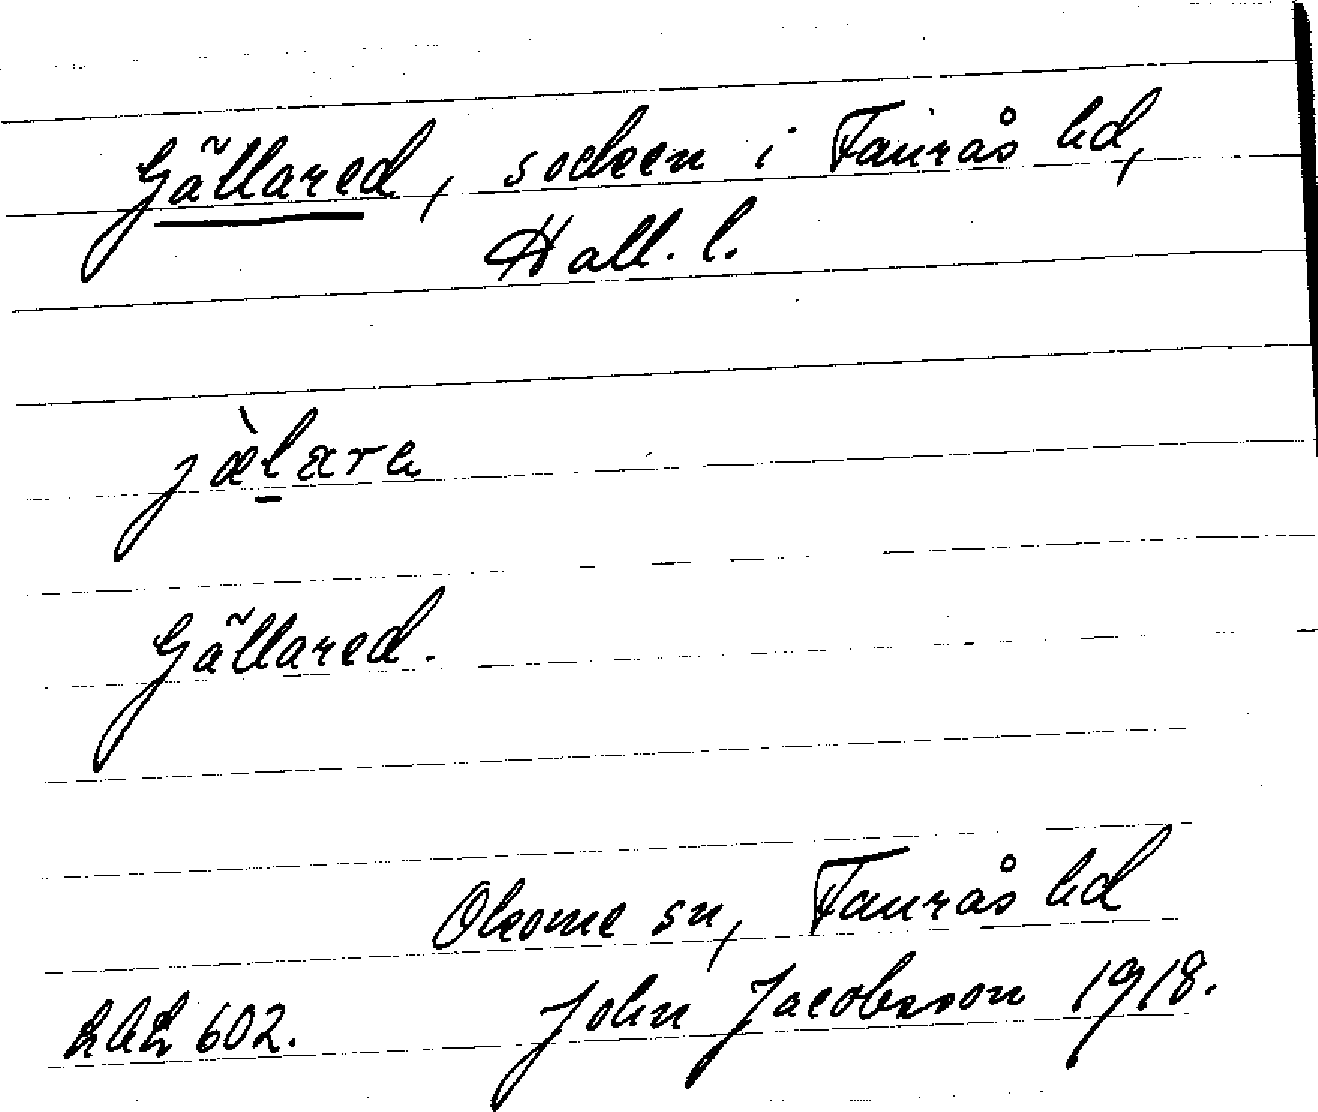 Gällared, socken i Faurås hd,
Hall. l.
jæ̀lara
Gällared.
Okome sn, Faurås hd
602. John Jacobsson 1918.